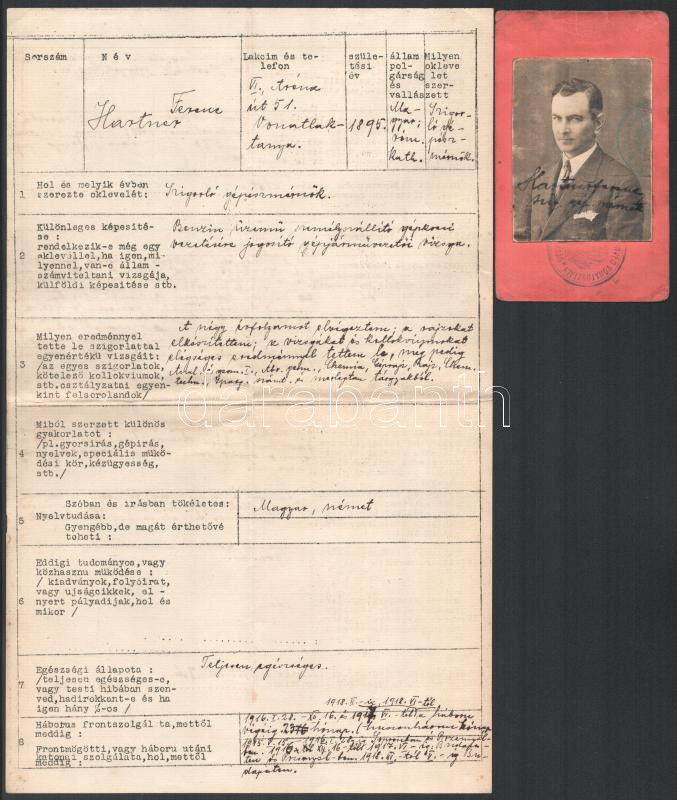 Sorszám
Név
Lakcim és te-
lefon
szüle-
tési
év
állam
pol-
gárság
és
vallás
Milyen
okleve
let
szer-
zett
Hartner Ferenc
VI., Aréna
út 51.
Vonatlak-
tanya.
1895.
Ma-
gyar;
rom.
kath.
Szigor-
ló gé-
pész-
mérnök.
1 Hol és melyik évben
szerezte oklevelét:
Szigorló gépészmérnök.
2 Különleges képesité-
se :
rendelkezik-e még egy
oklevéllel,ha igen,mi-
lyennel,van-e állam -
számviteltani vizsgája,
külföldi képesitése stb.
Benzin üzemű személyszállitó gépkocsi
vezetésére jogositó gépjárművezetői vizsga.
3 Milyen eredménnyel
tette le szigorlattal
egyenértékű vizsgáit:
/az egyes szigorlatok,
kötelező kollokviumok,
stb.osztályzatai egyen-
kint felsorolandók/
A négy évfolyamot elvégeztem; a rajzokat
elkészitettem; a vizsgákat és kollokviumokat
elégséges eredménnyel tettem le, még pedig
tárgyakból.
4 Miből szerzett különös
gyakorlatot :
/pl.gyorsirás,gépirás,
nyelvek,speciális mükö-
dési kör,kézügyesség,
stb./
5 Szóban és irásban tökéletes:
Nyelvtudása:
Gyengébb,de magát érthetővé
teheti :
Magyar, német
6 Eddigi tudományos,vagy
közhasznu müködése :
/ kiadványok,folyóirat,
vagy ujságcikkek, el -
nyert pályadijak,hol és
mikor /
7 Egészségi állapota :
/teljesen egészséges-e,
vagy testi hibában szen-
ved,hadirokkant-e és ha
igen hány %-os /
Teljesen egészséges.
8 Háborus frontszolgál ta,mettől
meddig :
Frontmögötti,vagy háboru utáni
katonai szolgálata,hol,mettől
meddig :
1918. VI-tól
hónap.
Hartner Ferenc
darabanth